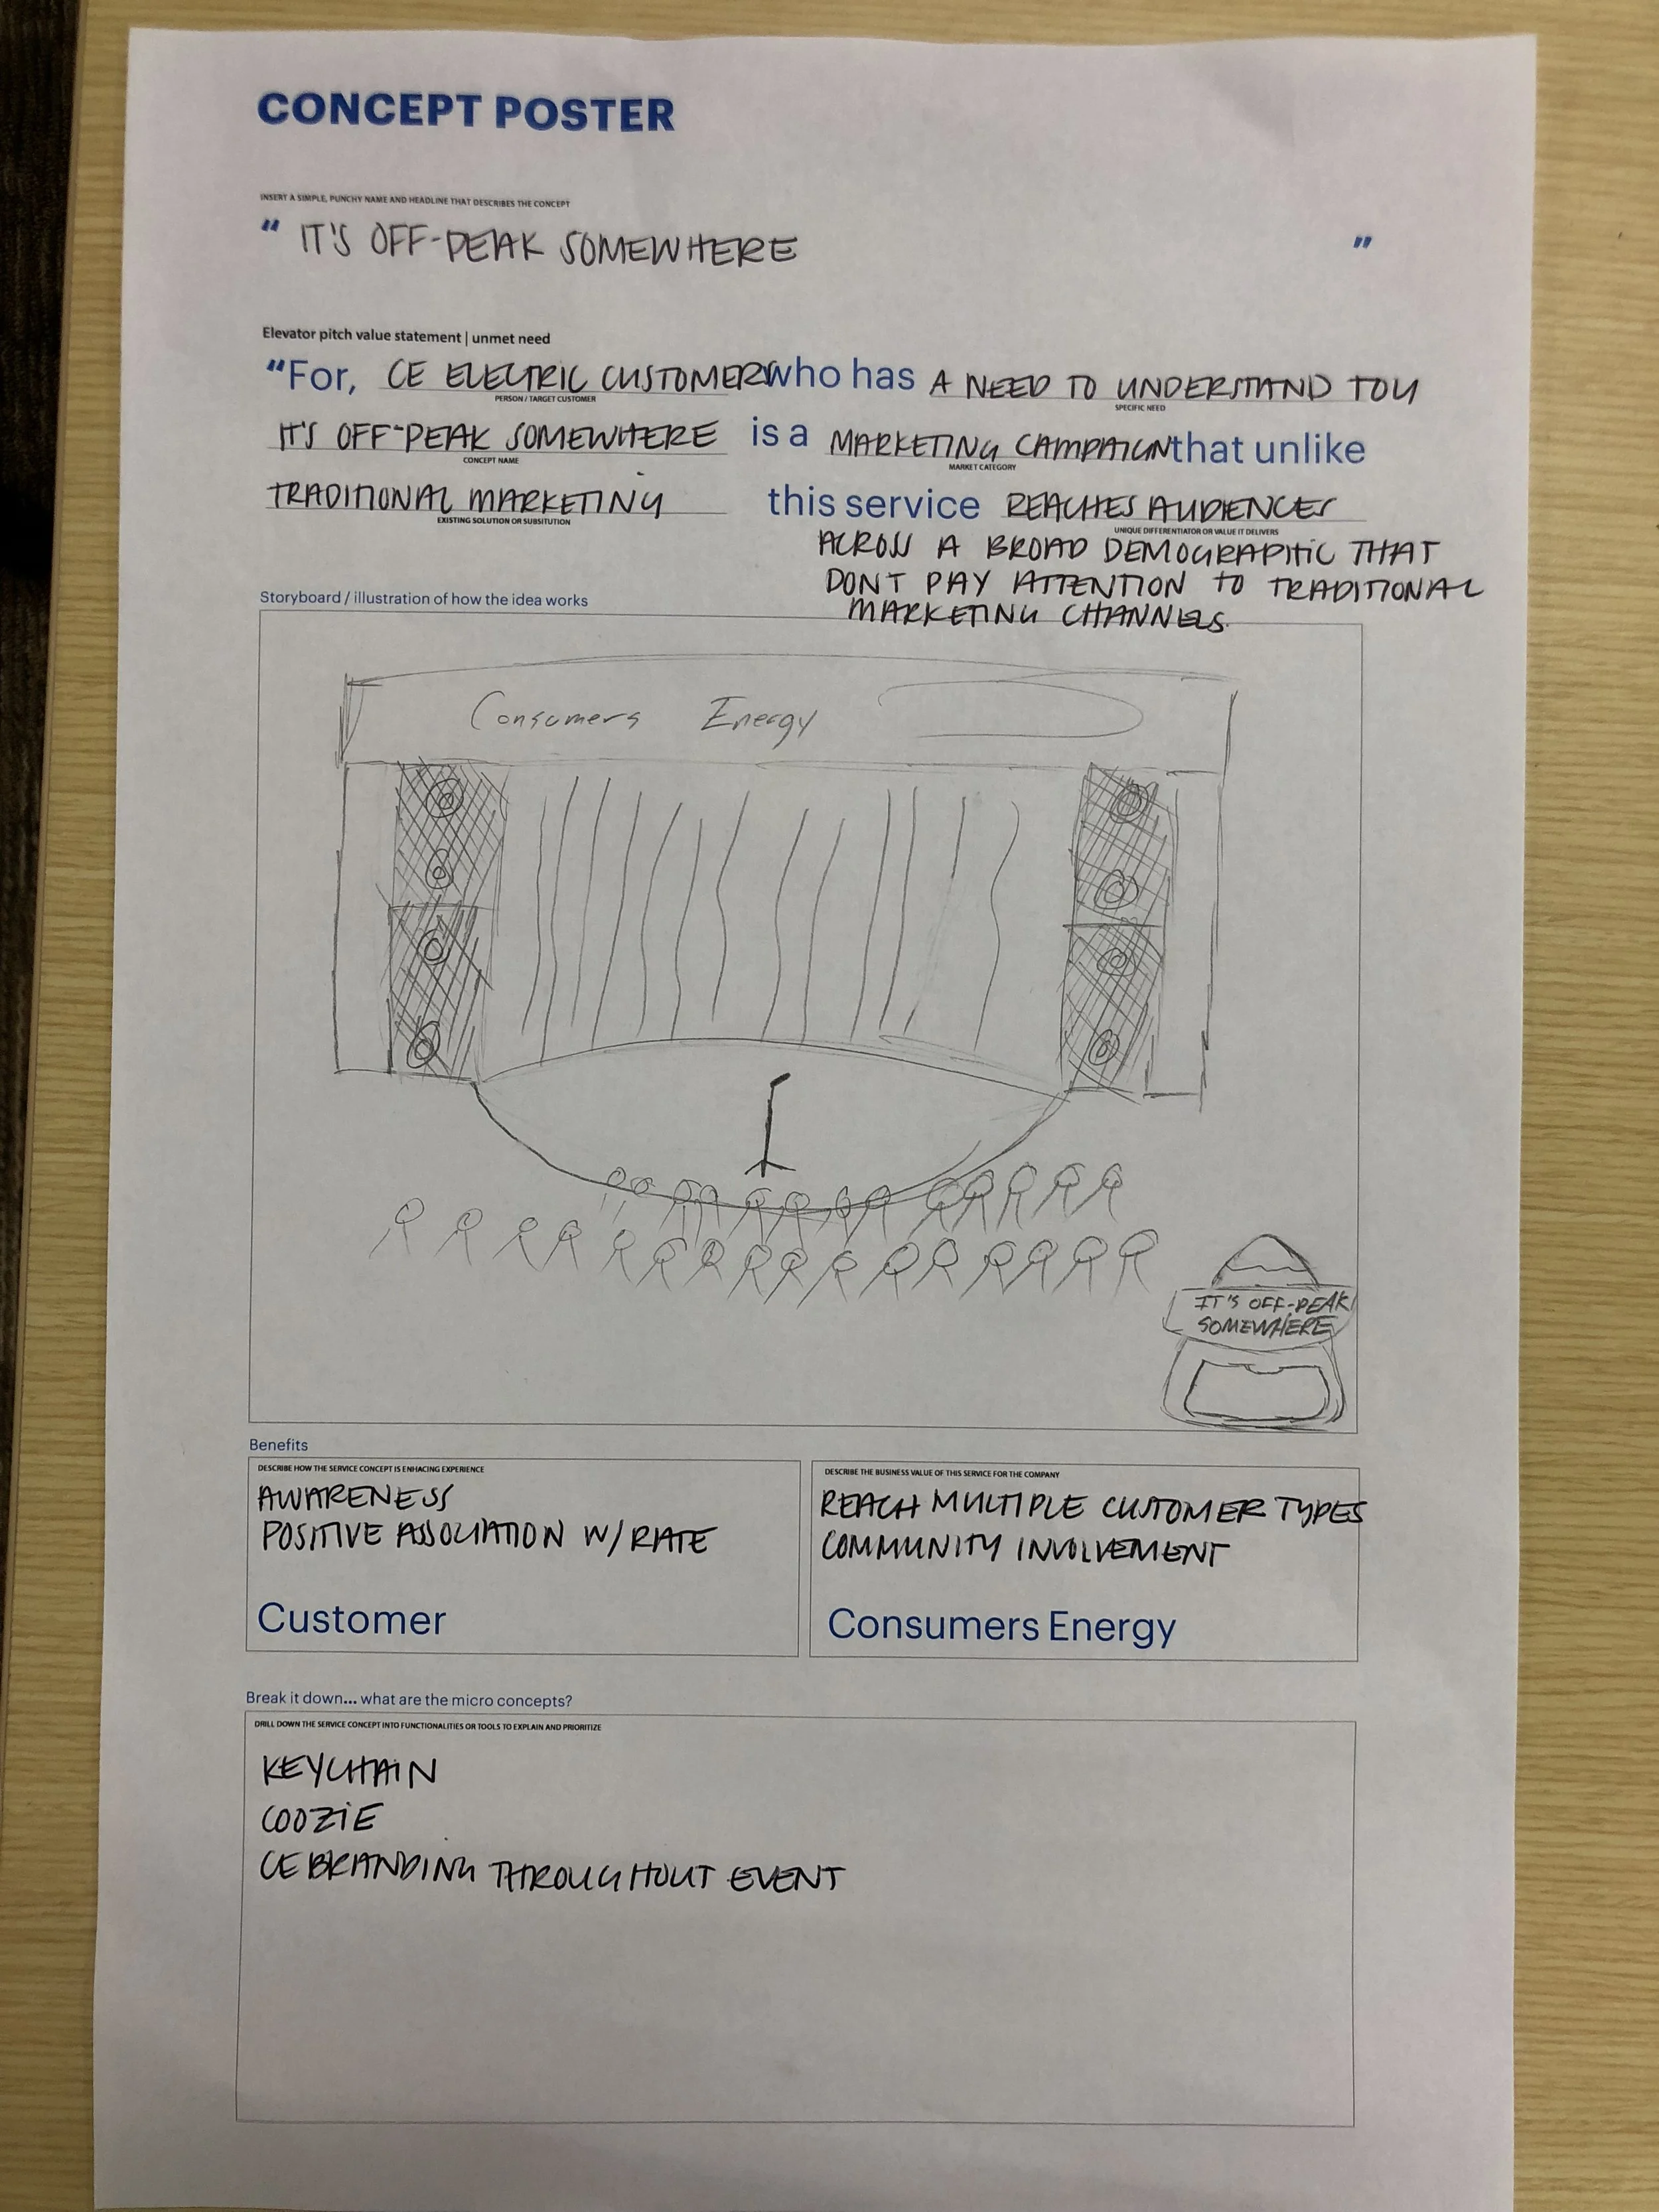 CONCEPT POSTER
INSERT A SIMPLE, PUNCHY NAME AND HEADLINE THAT DESCRIBES THE CONCEPT
" IT'S OFF-PEAK SOMEWHERE "
Elevator pitch value statement | unmet need
"For, CE ELECTRIC CUSTOMER who has A NEED TO UNDERSTAND TOU
PERSON / TARGET CUSTOMER SPECIFIC NEED
IT'S OFF-PEAK SOMEWHERE is a MARKETING CAMPAIGN that unlike
CONCEPT NAME MARKET CATEGORY
TRADITIONAL MARKETING this service REACHES AUDIENCES
EXISTING SOLUTION OR SUBSITUTION UNIQUE DIFFERENTIATOR OR VALUE IT DELIVERS
ACROSS A BROAD DEMOGRAPHIC THAT
DONT PAY ATTENTION TO TRADITIONAL
MARKETING CHANNELS.
Storyboard / illustration of how the idea works
Consumers Energy
IT'S OFF-PEAK
SOMEWHERE
Benefits
DESCRIBE HOW THE SERVICE CONCEPT IS ENHACING EXPERIENCE
AWARENESS
POSITIVE ASSOCIATION W/ RATE
Customer
DESCRIBE THE BUSINESS VALUE OF THIS SERVICE FOR THE COMPANY
REACH MULTIPLE CUSTOMER TYPES
COMMUNITY INVOLVEMENT
Consumers Energy
Break it down... what are the micro concepts?
DRILL DOWN THE SERVICE CONCEPT INTO FUNCTIONALITIES OR TOOLS TO EXPLAIN AND PRIORITIZE
KEYCHAIN
COOZIE
CE BRANDING THROUGHOUT EVENT